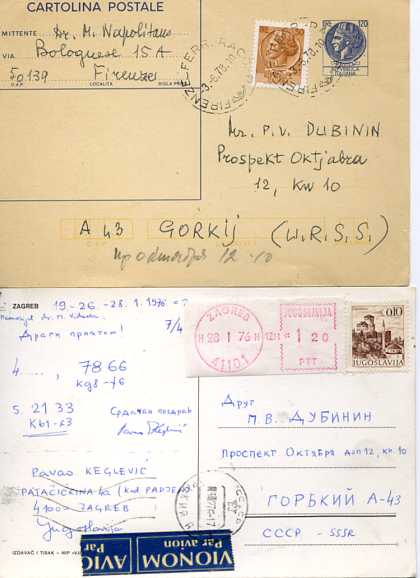 CARTOLINA POSTALE
MITTENTE Dr. M. Napolitano
VIA Bolognese 15 A
50139 Firenze
C.A.P. LOCALITÀ SIGLA PROV.
120
3-6.78
FIRENZE-FERR.
Mr. P.V. DUBININ
Prospekt Oktjabra
12, KW 10
A 43 GORKIJ (U.R.S.S.)
12-10
ZAGREB 19.-26.-28.1.1976
Драги пријатељ!
7/4
4. ... , 7866
Kg8-f6
5. 2133
Kb1-c3
Срдачан поздрав
Pavao KEGLEVIĆ
PATAČIČKINA 1a
41000 - ZAGREB
Jugoslavija
ZAGREB
28 1 76
41101
JUGOSLAVIJA
1 20
PTT
0,10
JUGOSLAVIJA
Друг
П.В. ДУБИНИН
ПРОСПЕКТ ОКТЯБРЯ дом 12, кв. 10
ГОРЬКИЙ А-43
СССР - SSSR
IZDAVAČ I TISAK - NIP
AVIONOM
Par avion